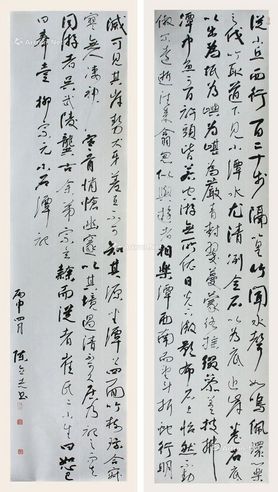 從丘西行百二十步隔篁竹聞水聲如鳴佩環心樂
之伐竹取道下見小潭水尤清冽全石以為底近岸卷石底
以出為坻為嶼為嵁為巖青樹翠蔓蒙絡搖綴參差披拂
潭中魚可百許頭皆若空游無所依日光下澈影布石上怡然不動
俶爾遠逝往來翕忽似與游者相樂潭西南而望斗折蛇行明
滅可見其岸勢犬牙差互不可知其源坐潭上四面竹樹環合寂
寥無人淒神寒骨悄愴幽邃以其境過清不可久居乃記之而去
同游者吳武陵龔古余弟宗玄隸而從者崔氏二小生曰恕己
曰奉壹柳宗元小石潭記
丙申四月陳書